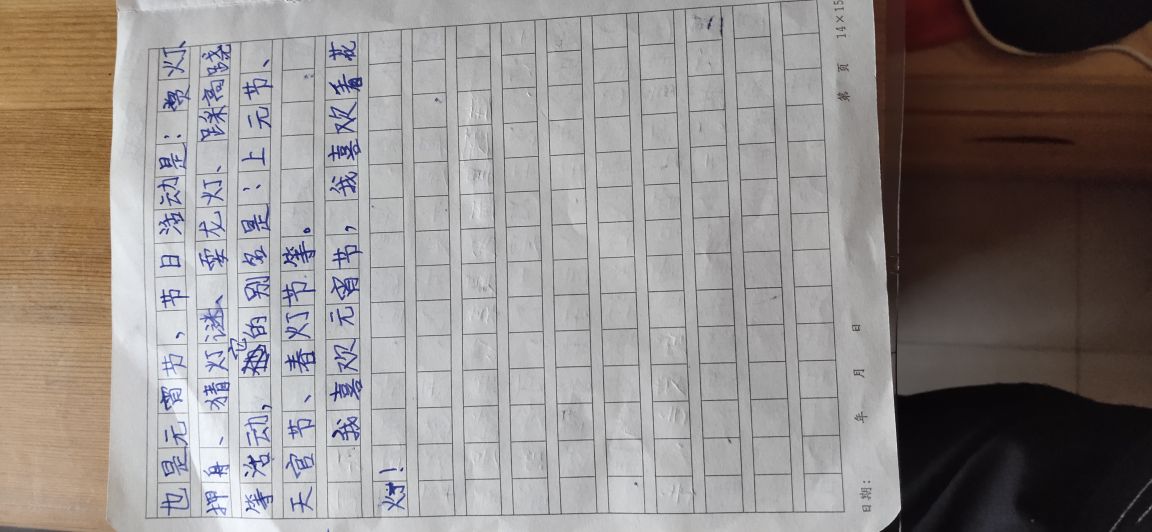 也是元宵节，节日活动是：赏灯、
押舟、猜灯谜、耍龙灯、踩高跷
等活动，它的别名是：上元节、
天官节、春灯节等。
我喜欢元宵节，我喜欢看花
灯！
日期： 年 月 日
第 页 14×15